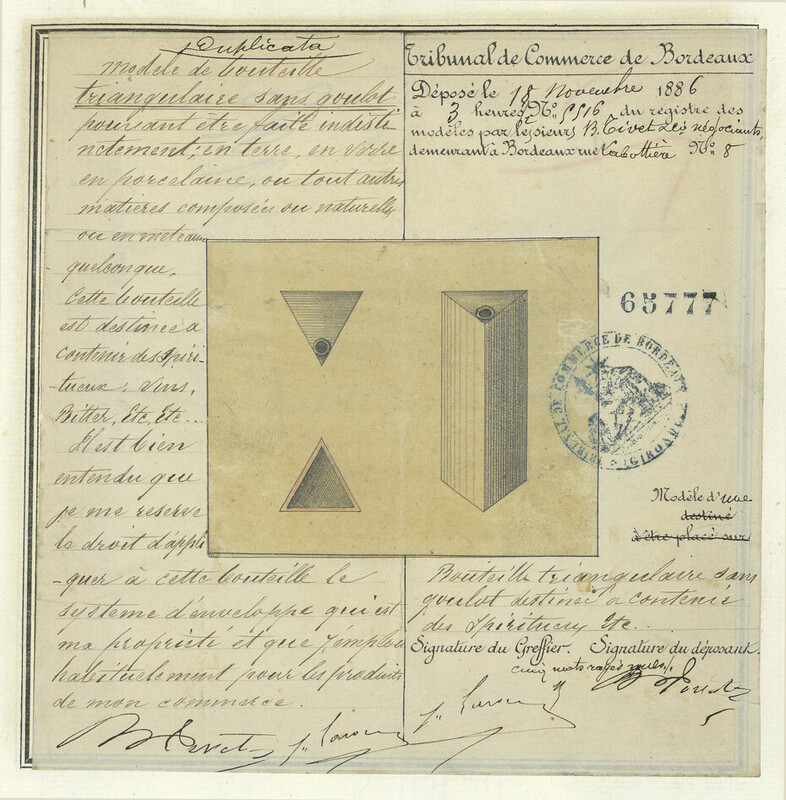 Duplicata
Modèle de bouteille
triangulaire sans goulot
pouvant être faite indisti
nctement; en terre, en verre
en porcelaine, ou tout autres
matières composées ou naturelles
ou en meteaux
quelconque.
Cette bouteille
est destinée a
contenir des Spiri-
tueux: Vins,
Bitter, Etc, Etc...
Il est bien
entendu que
je me reserve
le droit d'appli
-quer à cette bouteille le
système d'enveloppe qui est
ma propriété et que j'emploie
habituellement pour les produits
de mon commerce.
Tribunal de Commerce de Bordeaux
Déposé le 18 Novembre 1886
à 3 heures, No. 5516 du registre des
modèles par les sieurs B. Tivet & Cie négociants,
demeurant à Bordeaux rue Labottière No. 8
65777
TRIBUNAL DE COMMERCE DE BORDEAUX
(GIRONDE)
Modèle d'une
destiné
à être placé sur
Bouteille triangulaire sans
goulot destinée a contenir
des Spiritueux Etc..
Signature du Greffier. Signature du déposant.
cinq mots rayés nuls